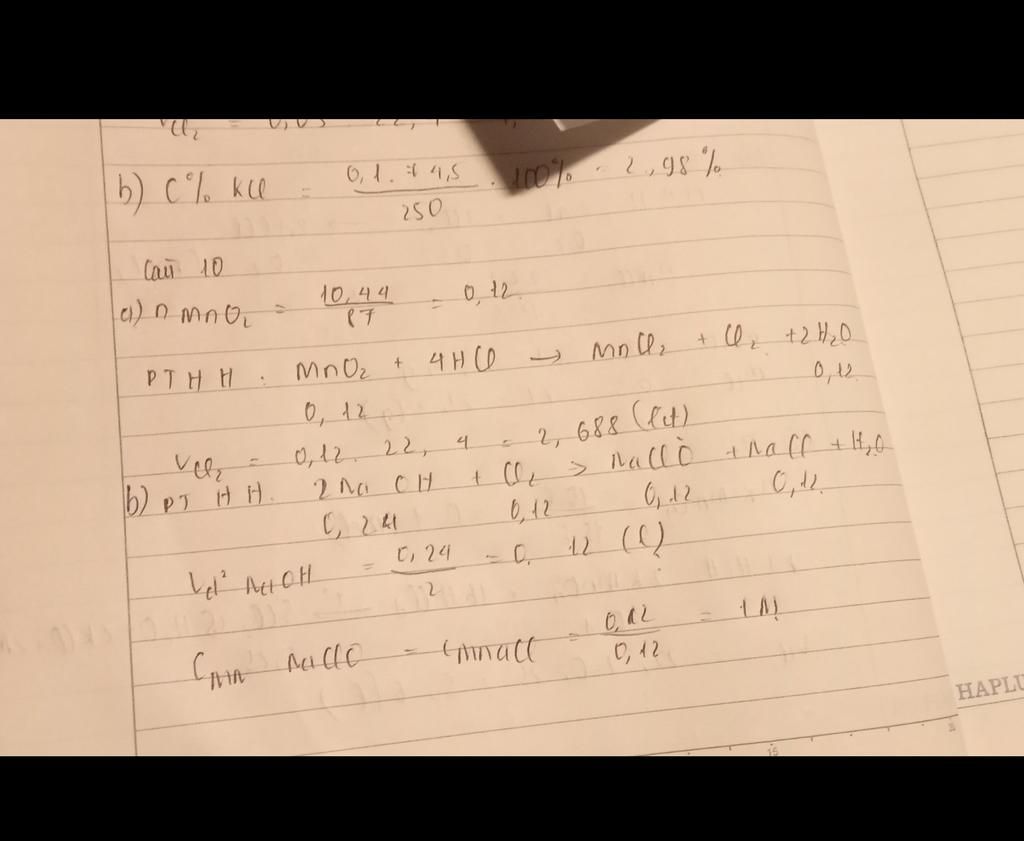 b) C% KCl = 0,1 . 74,5 / 250 . 100% = 2,98%
Câu 10
a) n MnO₂ = 10,44 / 87 = 0,12
PTHH : MnO₂ + 4HCl → MnCl₂ + Cl₂ + 2H₂O
0,12 0,12
VCl₂ = 0,12 . 22,4 = 2,688 (lít)
b) PTHH . 2NaOH + Cl₂ → NaClO + NaCl + H₂O
0,24 0,12 0,12 0,12
Vd² NaOH = 0,24 / 2 = 0,12 (l)
CM NaClO = CM NaCl = 0,12 / 0,12 = 1M
HAPLU
15